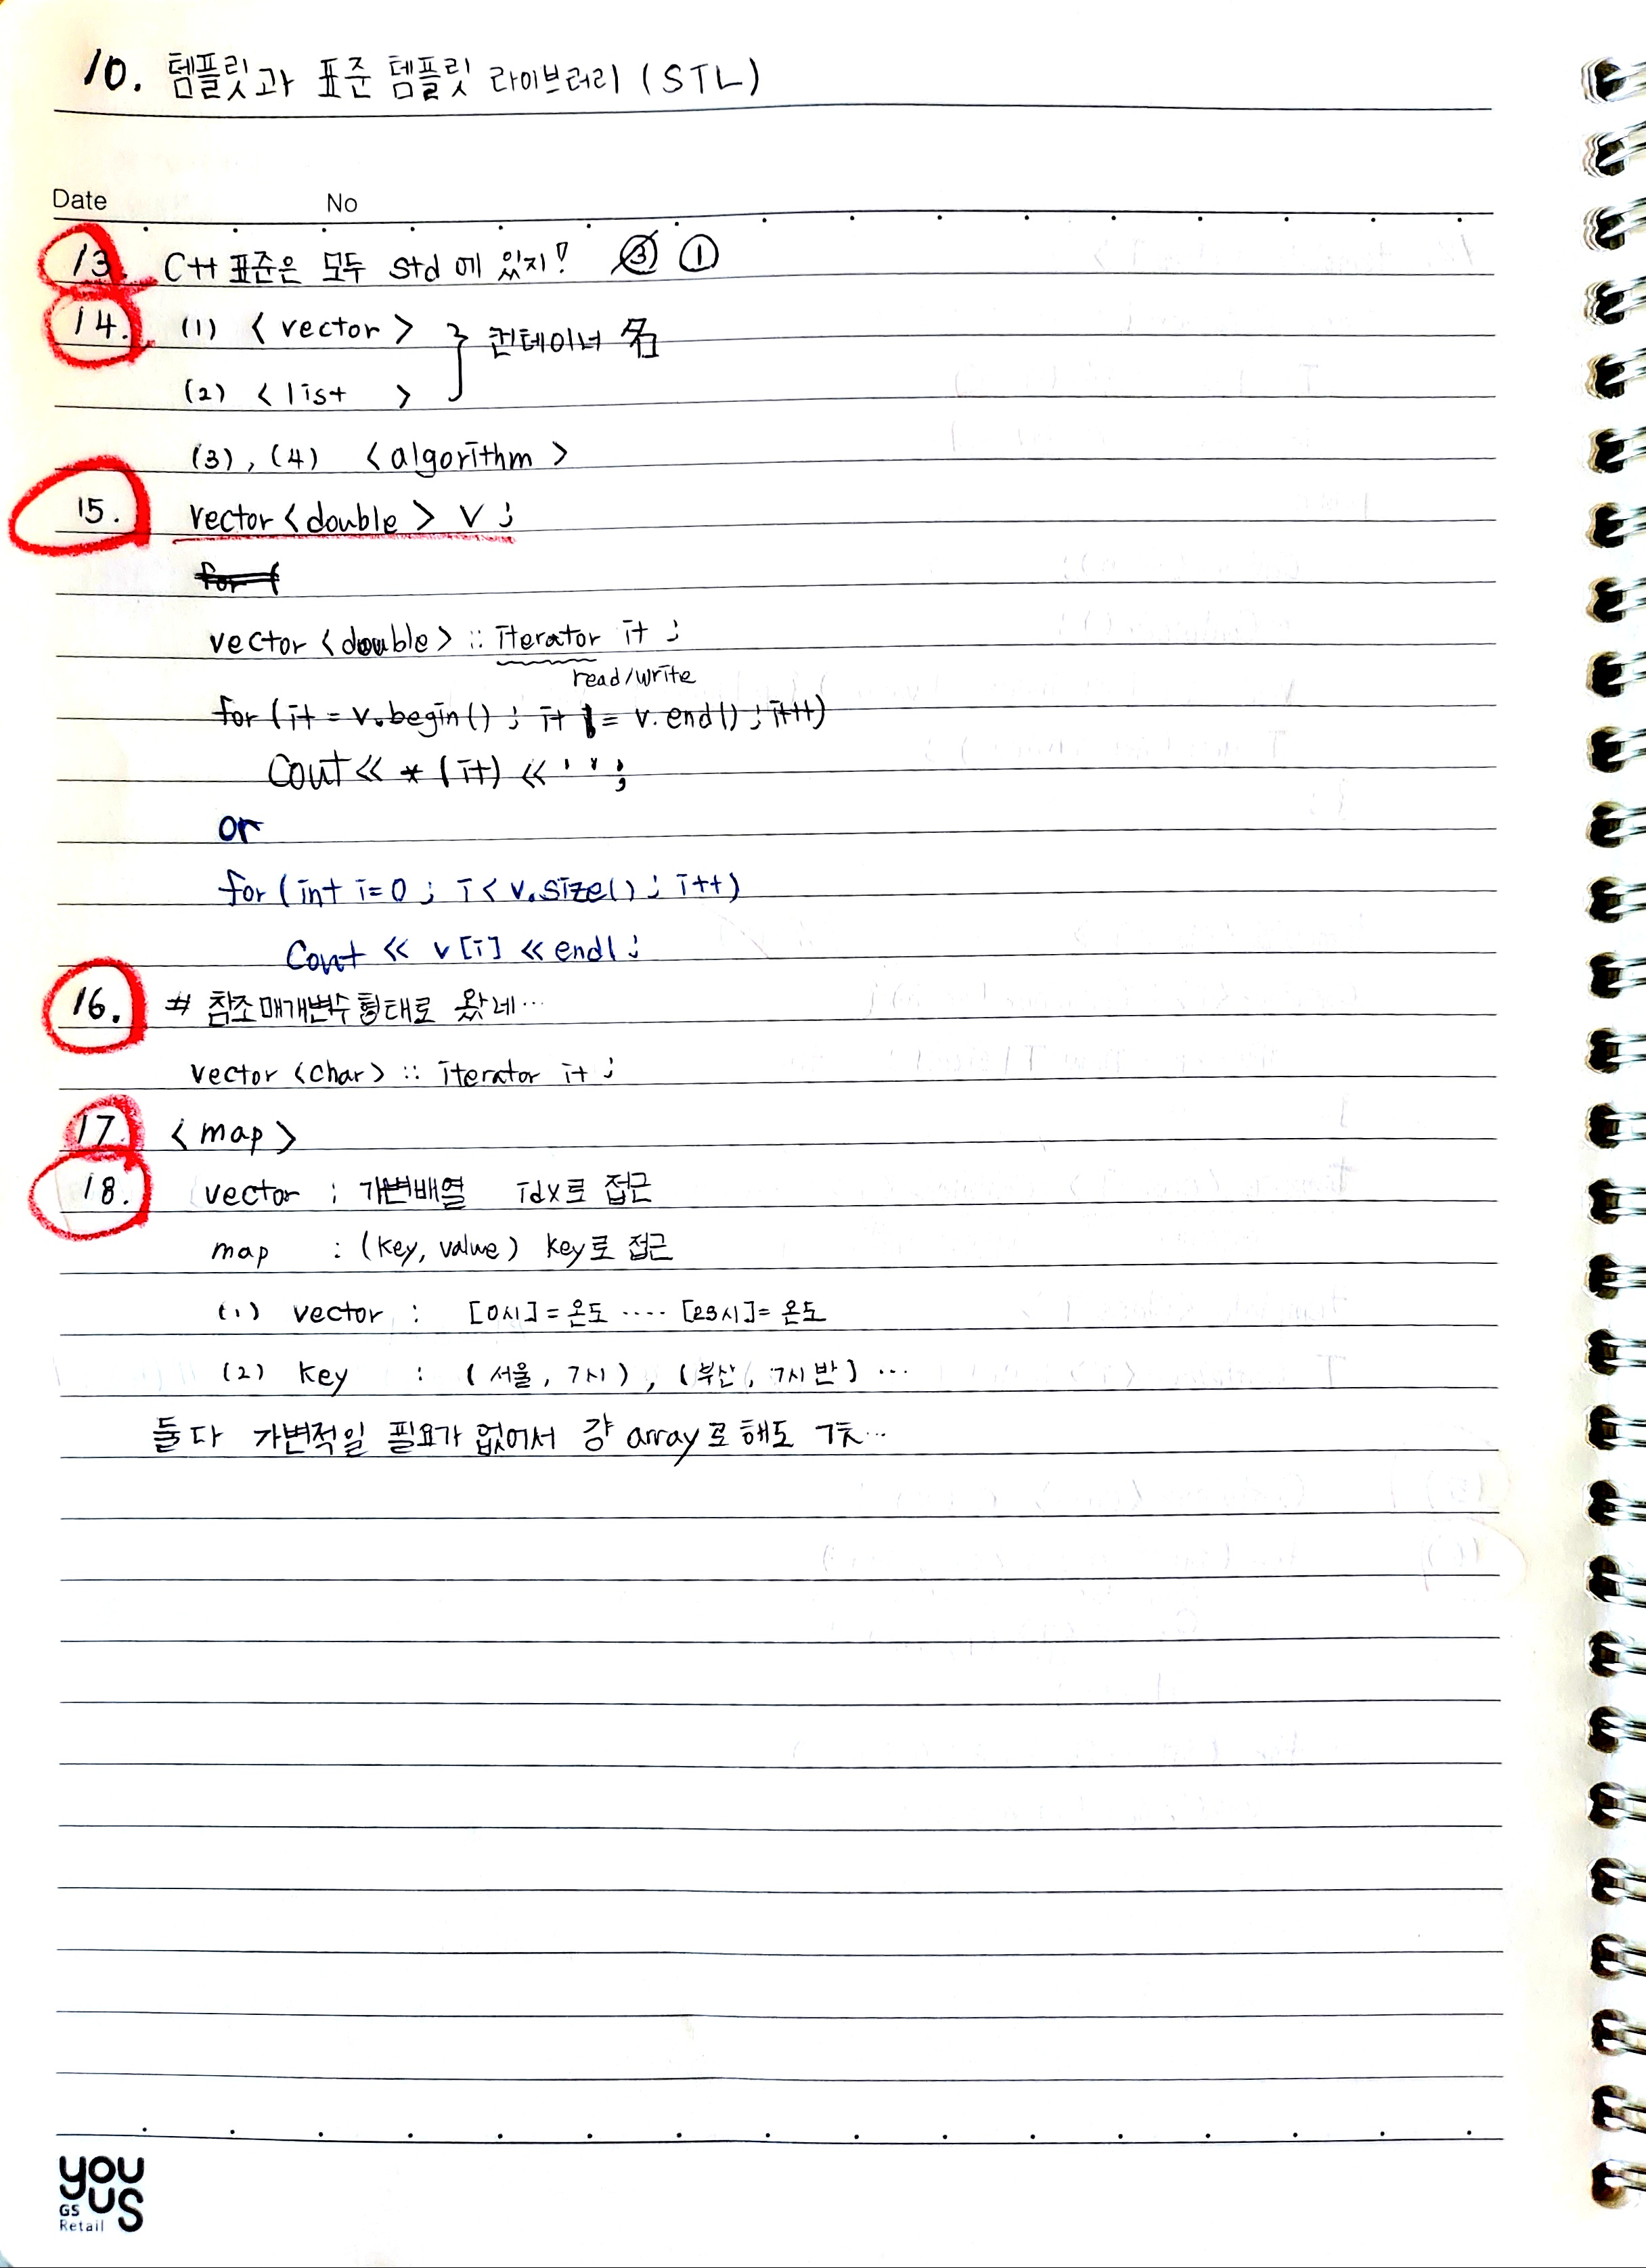 10. 템플릿과 표준 템플릿 라이브러리 (STL)
Date No
13. C++ 표준은 모두 std에 있지! ③ ①
14. (1) < vector > } 컨테이너 名
(2) < list >
(3), (4) < algorithm >
15. vector<double> v ;
for (
vector <double> :: iterator it ;
read/write
for ( it = v.begin() ; it != v.end() ; it++)
Cout << * (it) << ' ' ;
or
for ( int i=0 ; i < v.size() ; i++)
Cout << v[i] << endl ;
16. # 참조매개변수형태로 왔네…
vector <char> :: iterator it ;
17. < map >
18. vector : 가변배열 idx로 접근
map : (key, value) key로 접근
(1) vector : [0시]=온도 ···· [23시]= 온도
(2) key : ( 서울, 7시 ), (부산, 7시 반) ···
둘 다 가변적일 필요가 없어서 걍 array로 해도
you
us
GS
Retail